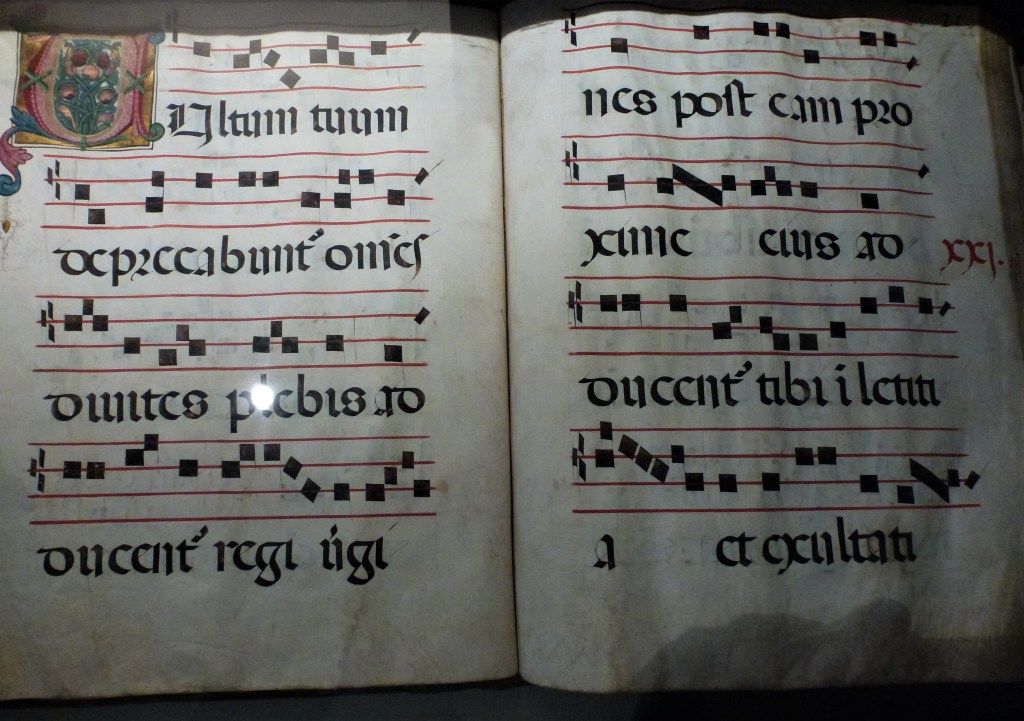 VUltum tuum
deprecabunt' om̅es
divites plebis ad
ducent' regi v̅gi
nes post eam pro
xime eius ad XXI.
ducent' tibi i̅ letiti
a et exultati